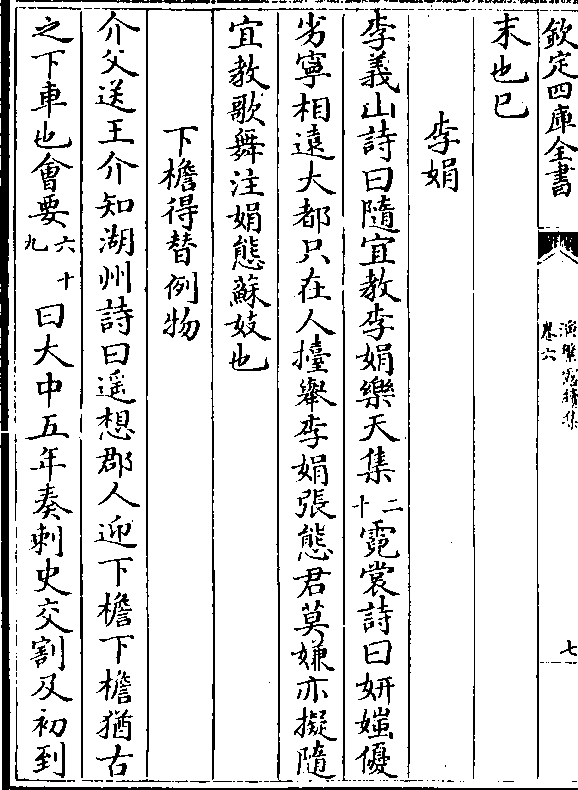 欽定四庫全書
演繁露續集
卷六
七
末也已
李娟
李義山詩曰隨宜教李娟樂天集二十霓裳詩曰妍媸優
劣寧相遠大都只在人擡舉李娟張態君莫嫌亦擬隨
宜教歌舞注娟態蘇妓也
下檐得替例物
介父送王介知湖州詩曰遥想郡人迎下檐下檐猶古
之下車也會要六十九曰大中五年奏刺史交割及初到